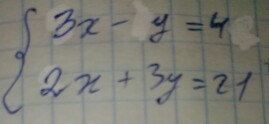 3x - y = 4
2x + 3y = 21